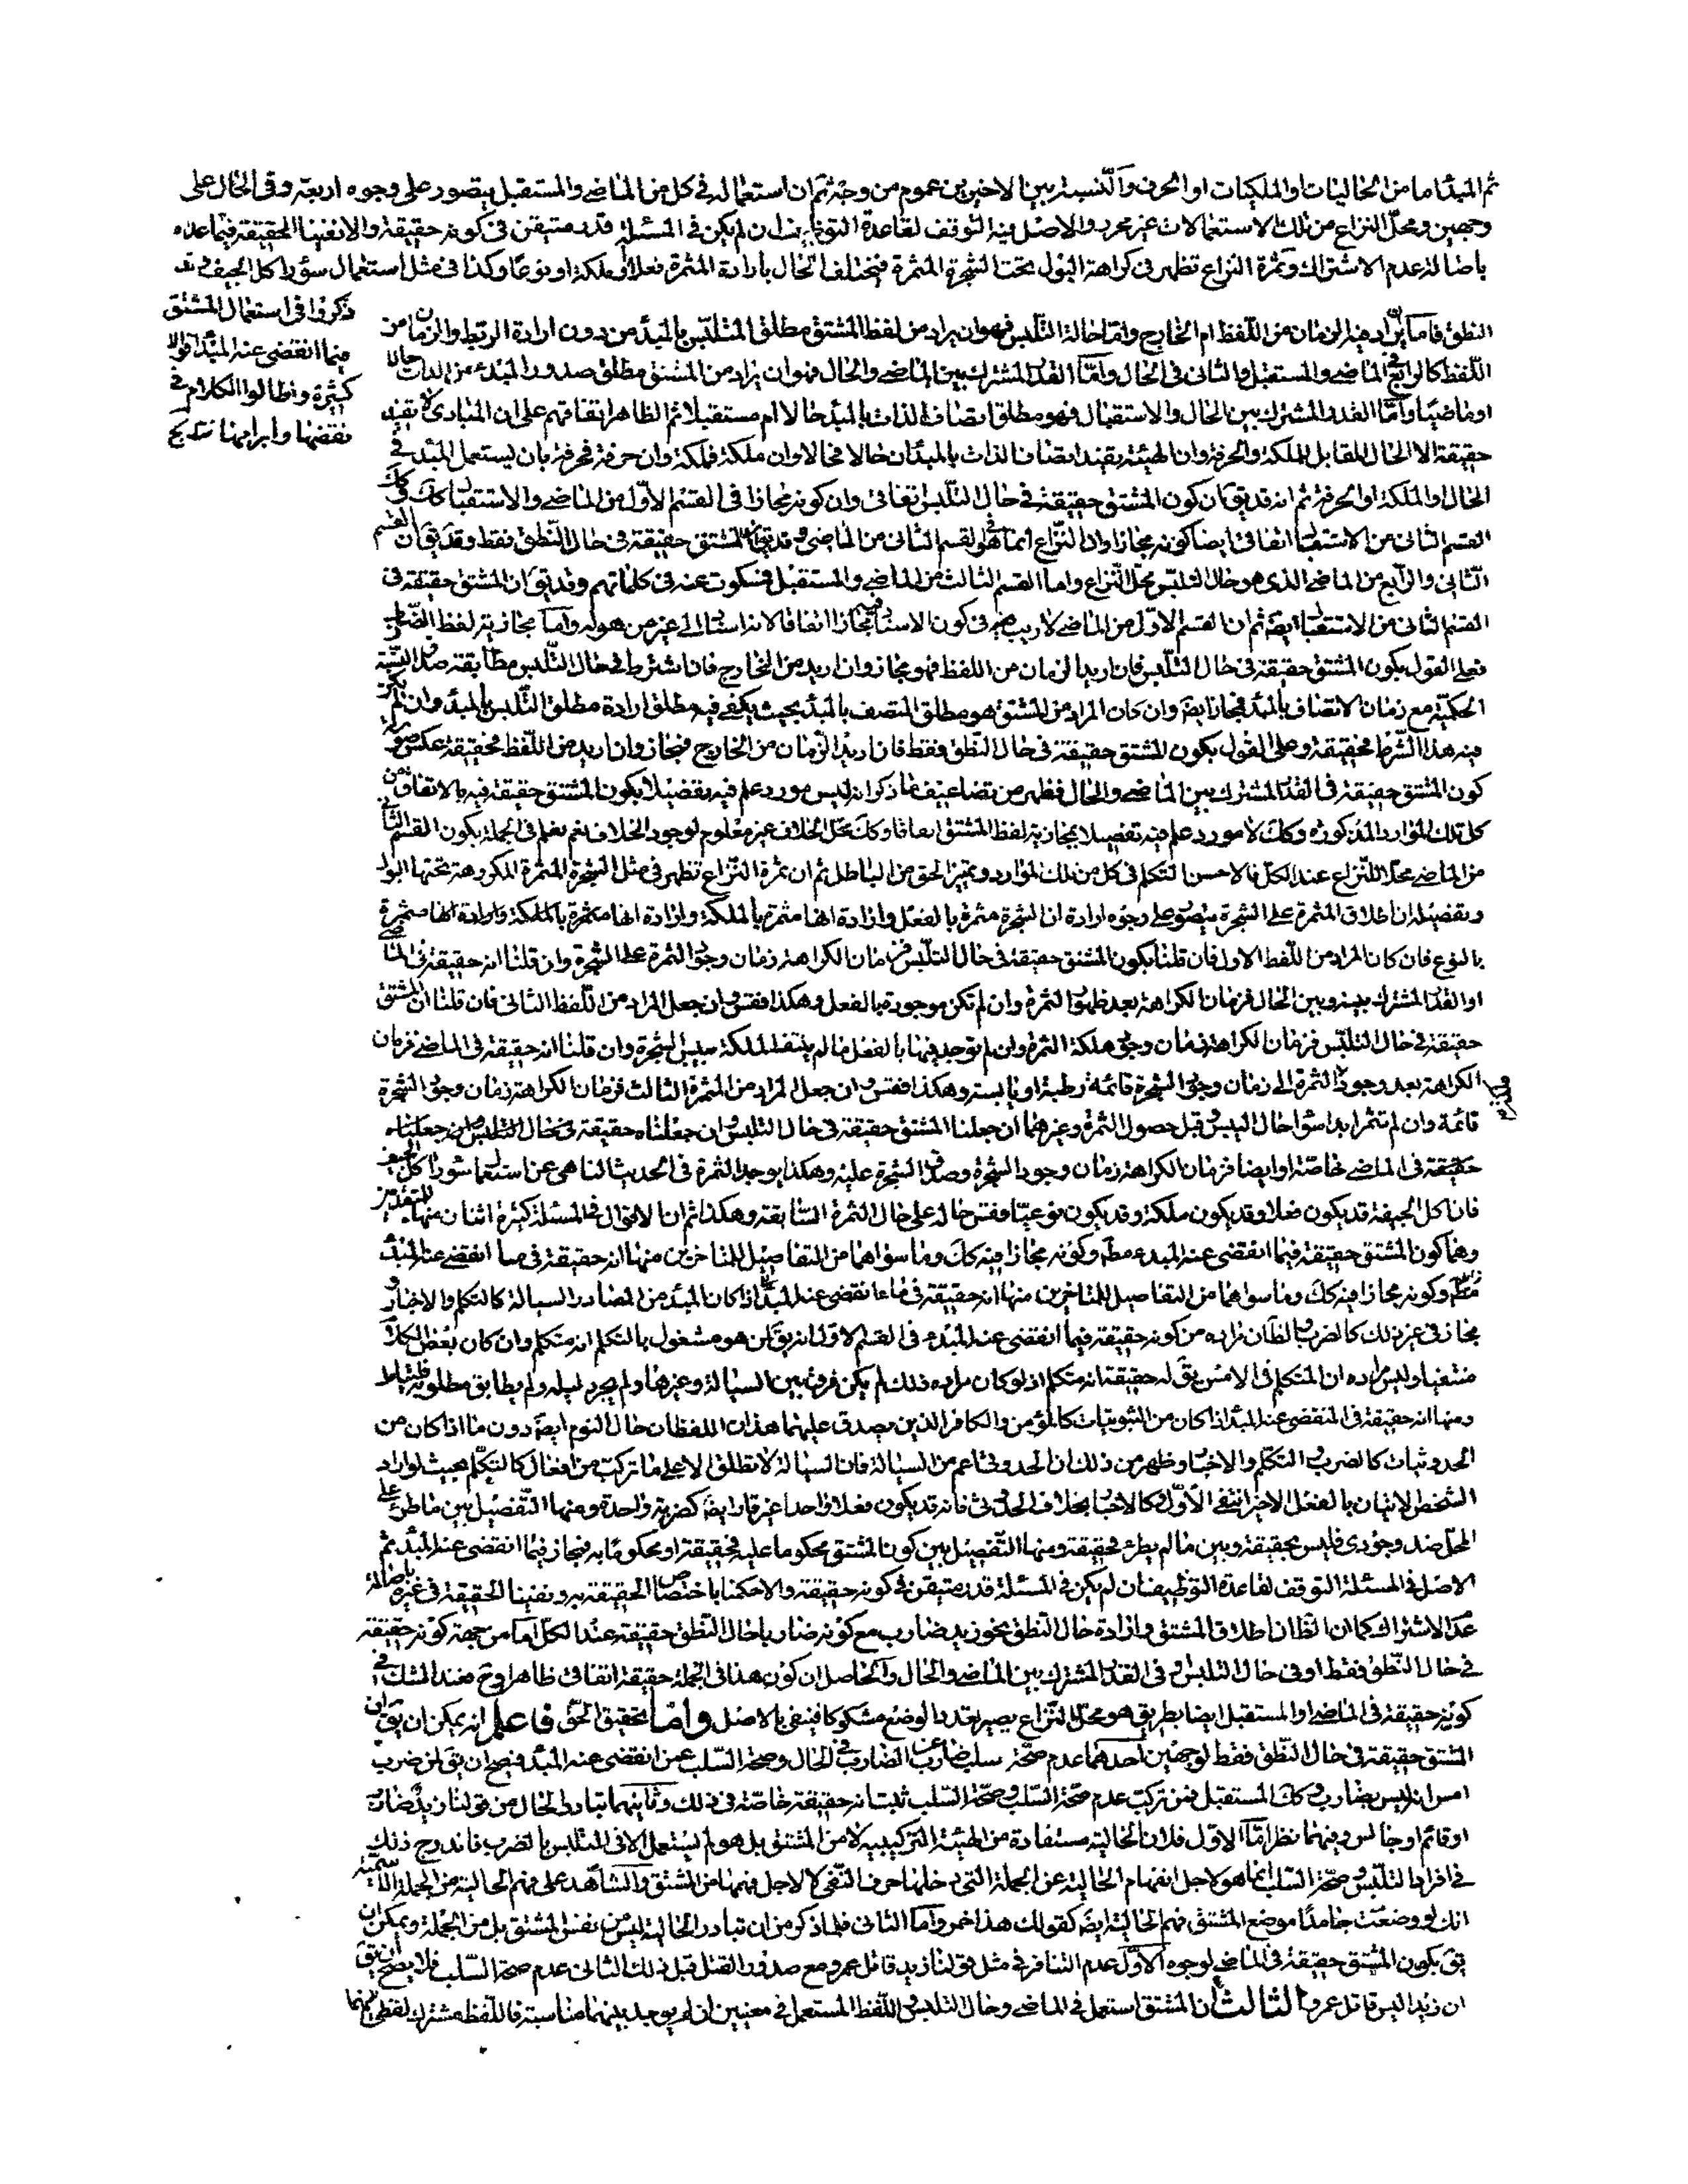 ثم المبدأ اما من الحاليات او الملكيات او الحرف والنسبة بين الاخيرين عموم من وجه ثم ان استعماله فى كل من الماضى والمستقبل يتصور على وجوه اربعة وفى الحال على
وجهين ومحل النزاع من تلك الاستعمالات غير محرر والاصل فيه التوقف لقاعدة التوظيف ان لم يكن فى المسئلة قدر متيقن فى كونه حقيقة والا نفينا الحقيقة فيما عداه
باصالة عدم الاشتراك وثمرة النزاع تظهر فى كراهة البول تحت الشجرة المثمرة فيختلف الحال بارادة المثمرة فعلا او ملكة او نوعا وكذا فى مثل استعمال سؤر اكل الجيف
ذكروا فى استعمال المشتق
فيما انقضى عنه المبدأ اقوالا
كثيرة واطالوا الكلام فى
نقضها وابرامها
النطق فاما يراد هذا الزمان من اللفظ ام الخارج واما حالة التلبس فهو ان يراد من لفظ المشتق مطلق المتلبس بالمبدء من دون ارادة الربط والزمان من
اللفظ كالواقع فى الماضى والمستقبل والثانى فى الحال واما القدر المشترك بين الماضى والحال فهو ان يراد من المشتق مطلق صدور المبدء عن الذات حالا
او ماضيا واما القدر المشترك بين الحال والاستقبال فهو مطلق اتصاف الذات بالمبدء حالا ام مستقبلا ثم الظاهر اتفاقهم على ان المبادى لا تفيد
حقيقة الا الحال المقابل للملكة والحرفة وان الهيئة تفيد اتصاف الذات بالمبدء ان حالا فحالا وان ملكة فملكة وان حرفة فحرفة بان يستعمل المبدء فى
الحال او الملكة او الحرفة ثم انه قد يق ان كون المشتق حقيقة فى حال التلبس اتفاقى وان كونه مجازا فى القسم الاول من الماضى والاستقبال كك وفى
القسم الثانى من الاستقبال اتفاقى ايضا كونه مجازا وان النزاع انما هو فى القسم الثانى من الماضى وقد يق ان المشتق حقيقة فى حال النطق فقط وقد يق ان القسم
الثانى والرابع من الماضى الذى هو حال التلبس محل النزاع واما القسم الثالث من الماضى والمستقبل فمسكوت عنه فى كلماتهم وقد يق ان المشتق حقيقة فى
القسم الثانى من الاستقبال ايضا ثم ان القسم الاول من الماضى لا ريب فى كون الاسناد فيه مجازا اتفاقا لانه اسناد الى غير من هو له واما مجازية لفظ الضارب
فعلى القول بكون المشتق حقيقة فى حال التلبس فان اريد الزمان من اللفظ فهو مجاز وان اريد من الخارج فان اشترط فى حال التلبس مطابقة صدق النسبة
الحكمية مع زمان الاتصاف بالمبدء فمجاز ايضا وان كان المراد من المشتق هو مطلق المتصف بالمبدء بحيث يكفى فيه مطلق ارادة مطلق التلبس بالمبدء وان لم يكن
فيه هذا الشرط فحقيقة وعلى القول بكون المشتق حقيقة فى حال النطق فقط فان اريد الزمان من الخارج فمجاز وان اريد من اللفظ فحقيقة عكس صورة
كون المشتق حقيقة فى القدر المشترك بين الماضى والحال فظهر من تضاعيف ما ذكر انه ليس مورد علم فيه تفصيلا بكون المشتق حقيقة فيه بالاتفاق من
كل تلك الموارد المذكورة وكك لا مورد علم فيه تفصيلا بمجازية لفظ المشتق اتفاقا وكك محل الخلاف غير معلوم لوجود الخلاف نعم نعلم فى الجملة بكون القسم الثانى
من الماضى محلا للنزاع عند الكل فالاحسن التكلم فى كل من تلك الموارد وتميز الحق من الباطل ثم ان ثمرة النزاع تظهر فى مثل الشجرة المثمرة المكروهة تحتها البول
وتفصيله ان اطلاق المثمرة على الشجرة يتصور على وجوه ارادة ان الشجرة مثمرة بالفعل وارادة انها مثمرة بالملكة وارادة انها مثمرة بالملكة وارادة انها مثمرة
بالنوع فان كان المراد من اللفظ الاول فان قلنا بكون المشتق حقيقة فى حال التلبس فزمان الكراهة زمان وجود الثمرة على الشجرة وان قلنا انه حقيقة فى الماضى
او القدر المشترك بينه وبين الحال فزمان الكراهة بعد ظهور الثمرة وان لم تكن موجودة بالفعل وهكذا ففتش وان جعل المراد من اللفظ الثانى فان قلنا ان المشتق
حقيقة فى حال التلبس فزمان الكراهة زمان وجود ملكة الثمرة وان لم توجد فيها بالفعل ما لم ينتف الملكة بيبس الشجرة وان قلنا انه حقيقة فى الماضى فزمان
الكراهة بعد وجود الثمرة الى زمان وجود الشجرة قائمة رطبة او يابسة وهكذا ففتش وان جعل المراد من المثمرة الثالث فزمان الكراهة زمان وجود الشجرة
قائمة وان لم تثمر ابدا سواء حال اليبس قبل حصول الثمرة وغيرهما ان جعلنا المشتق حقيقة فى حال التلبس وان جعلناه حقيقة فى حال التلبس وان جعلناه
حقيقة فى الماضى خاصة او ايضا فزمان الكراهة زمان وجود الشجرة وصدق الشجرة عليه وهكذا يوجد الثمرة فى الحديث الناهى عن استعمال سؤر اكل الجيف
فان اكل الجيفة قد يكون فعلا وقد يكون ملكة وقد يكون نوعيا ففتش حاله على حال الثمرة السابقة وهكذا ثم ان الاقوال فى المسئلة كثيرة اثنان منها للمتقدمين
وهما كون المشتق حقيقة فيما انقضى عنه المبدء مط وكونه مجازا فيه كك وما سواهما من التفاصيل للمتاخرين منها انه حقيقة فى ما انقضى عنه المبدء
مط وكونه مجازا فيه كك وما سواهما من التفاصيل للمتاخرين منها انه حقيقة فى ما انقضى عنه المبدء اذا كان المبدء من المصادر السيالة كالتكلم والاخبار
مجاز فى غير ذلك كالضرب والظ ان مراده من كونه حقيقة فيما انقضى عنه المبدء فى القسم الاول انه يق لمن هو مشغول بالتكلم انه متكلم وان كان بعض الكلام
منتفيا وليس مراده ان المتكلم فى الامس يق له حقيقة انه متكلم اذ لو كان مراده ذلك لم يكن فرق بين السيالة وغيرها ولم يجر دليله ولم يطابق مطلوبه
ومنها انه حقيقة فى المنقضى عنه المبدء اذا كان من الثبوتيات كالمؤمن والكافر الذين يصدق عليهما هذان اللفظان حال النوم ايضا دون ما اذا كان من
الحدوثيات كالضرب والتكلم والاخبار وظهر من ذلك ان الحدوثى اعم من السيالة فان السيالة لا تطلق الا على ما تركب من افعال كالتكلم بحيث لو اراد
الشخص الاتيان بالفعل الاخير انتفى الاول كالاخبار بخلاف الحدوثى فانه قد يكون فعلا واحدا غير قار ايضا كضربة واحدة ومنها التفصيل بين ما طرء على
المحل ضد وجودى فليس بحقيقة وبين ما لم يطرء فحقيقة ومنها التفصيل بين كون المشتق محكوما عليه فحقيقة او محكوما به فمجاز فيما انقضى عنه المبدء ثم
الاصل فى المسئلة التوقف لقاعدة التوظيف ان لم يكن فى المسئلة قدر متيقن فى كونه حقيقة والا حكمنا باختصاص الحقيقة به ونفينا الحقيقة فى غيره باصالة
عدم الاشتراك كما ان الظ ان اطلاق المشتق وارادة حال النطق نحو زيد ضارب مع كونه ضاربا حال النطق حقيقة عند الكل اما من جهة كونه حقيقة
فى حال النطق فقط او فى حال التلبس او فى القدر المشترك بين الماضى والحال والحاصل ان كون هذا فى الجملة حقيقة اتفاقى ظاهرا وح فعند الشك فى
كونه حقيقة فى الماضى او المستقبل ايضا بطريق هو محل النزاع يصير تعدد الوضع مشكوكا فينفى بالاصل واما تحقيق الحق فاعلم انه يمكن ان يق ان
المشتق حقيقة فى حال النطق فقط لوجهين احدهما عدم صحة سلب ضارب عن الضارب فى الحال وصحة السلب عمن انقضى عنه المبدء فيصح ان يق لمن ضرب
امس انه ليس بضارب وكك المستقبل فمن تركب عدم صحة السلب وصحة السلب ثبت انه حقيقة خاصة فى ذلك وثانيهما تبادر الحال من قولنا زيد ضارب
او قائم او جالس وفيهما نظر اما الاول فلان الحالية مستفادة من الهيئة التركيبية لا من المشتق بل هو لم يستعمل الا فى المتلبس بالضرب فاندرج ذلك
فى افراد المتلبس وصحة السلب انما هو لاجل انفهام الحالية عن الجملة التى دخلها حرف النفى لا لاجل فهمها من المشتق والشاهد على فهم الحالية من الجملة الاسمية
انك لو وضعت جامدا موضع المشتق فهم الحالية ايضا كقولك هذا خمر واما الثانى فلما ذكر من ان تبادر الحالية ليس من نفس المشتق بل من الجملة ويمكن ان
يق بكون المشتق حقيقة فى الماضى لوجوه الاول عدم التنافر فى مثل قولنا زيد قاتل عمرو مع صدور القتل قبل ذلك الثانى عدم صحة السلب فلا يصح ان يق
ان زيدا ليس قاتل عمرو الثالث ان المشتق استعمل فى الماضى وحال التلبس واللفظ المستعمل فى معنيين ان لم يوجد بينهما مناسبة فاللفظ مشترك لفظى بينهما